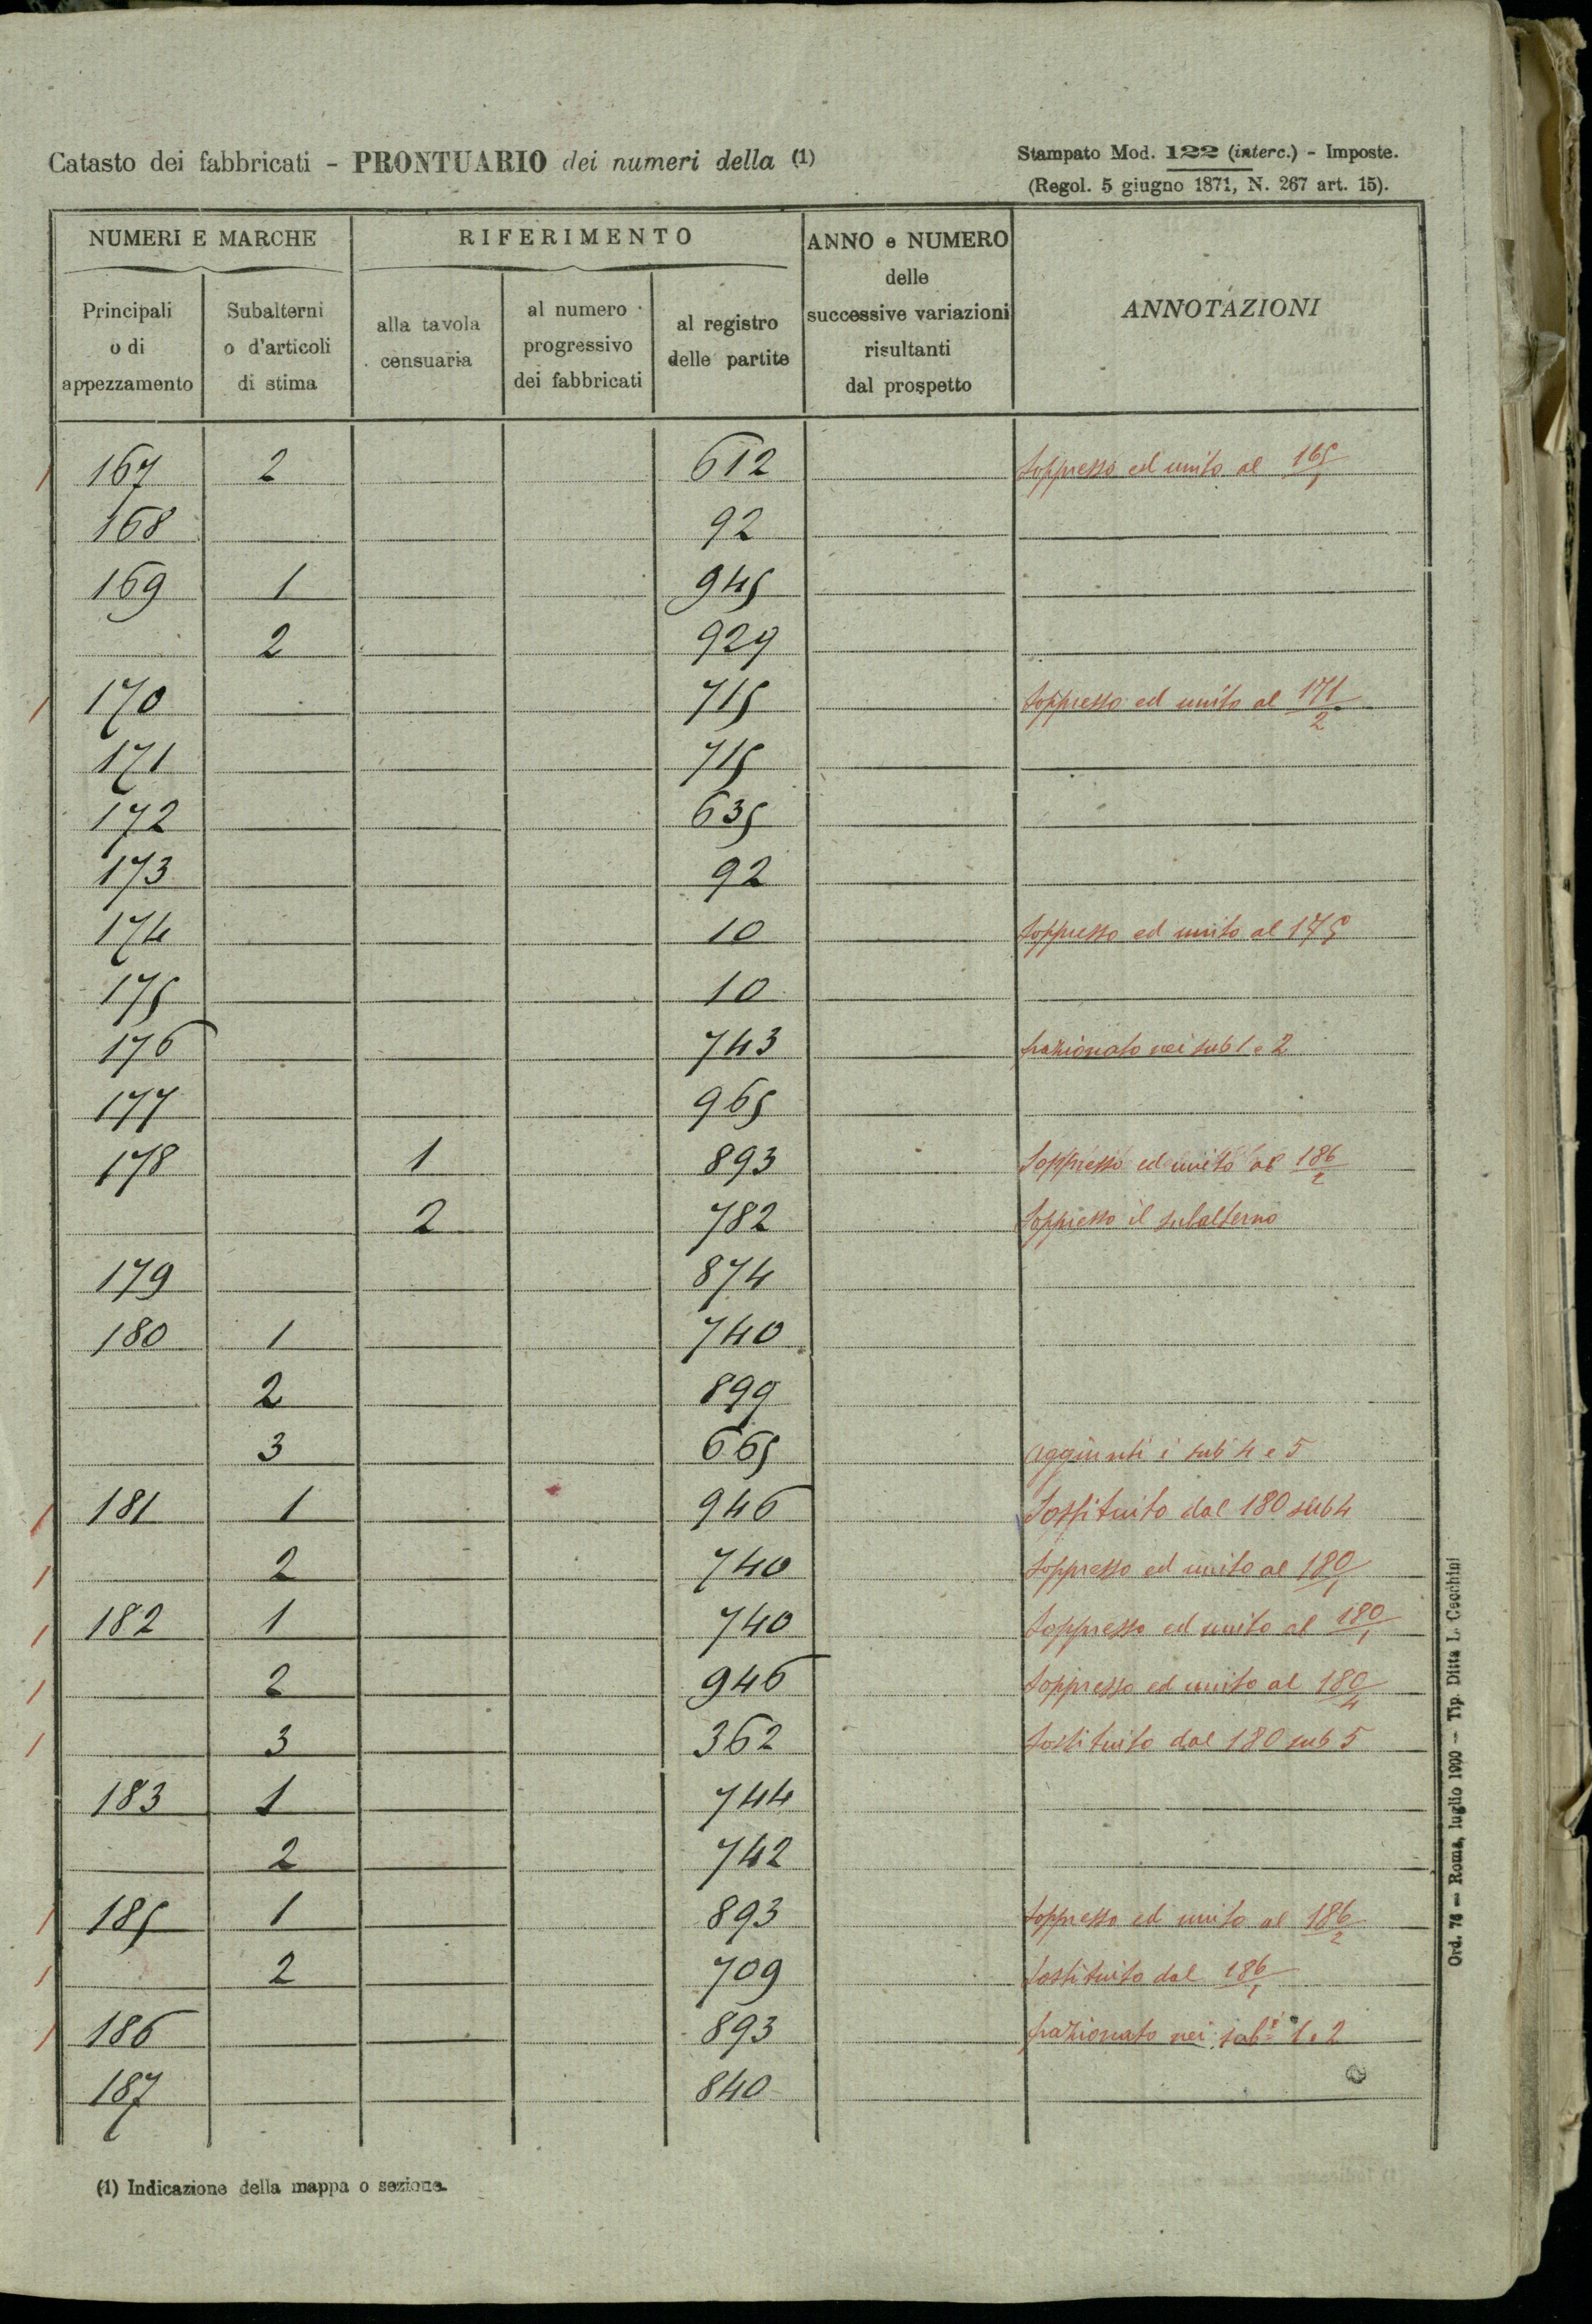 Catasto dei fabbricati - PRONTUARIO dei numeri della (1)
Stampato Mod. 122 (interc.) - Imposte.
(Regol. 5 giugno 1871, N. 267 art. 15).
NUMERI E MARCHE
RIFERIMENTO
ANNO e NUMERO
delle
successive variazioni
risultanti
dal prospetto
ANNOTAZIONI
Principali
o di
appezzamento
Subalterni
o d'articoli
di stima
alla tavola
censuaria
al numero
progressivo
dei fabbricati
al registro
delle partite
167 2 612 soppresso ed unito al 165/1
168 92
169 1 945
2 929
170 715 soppresso ed unito al 171/2
171 715
172 635
173 92
174 10 soppresso ed unito al 175
175 10
176 743 frazionato nei sub 1 e 2
177 965
178 1 893 soppresso ed unito al 186/2
2 782 soppresso il subalterno
179 874
180 1 740
2 899
3 665 aggiunti i sub 4 e 5
181 1 946 sostituito dal 180 sub 4
2 740 soppresso ed unito al 180/1
182 1 740 soppresso ed unito al 180/1
2 946 soppresso ed unito al 180/4
3 362 sostituito dal 180 sub 5
183 1 744
2 742
185 1 893 soppresso ed unito al 186/2
2 709 sostituito dal 186/1
186 893 frazionato nei sub.i 1 e 2
187 840
(1) Indicazione della mappa o sezione.
Ord. 76 — Roma, luglio 1900 — Tip. Ditta L. Cecchini